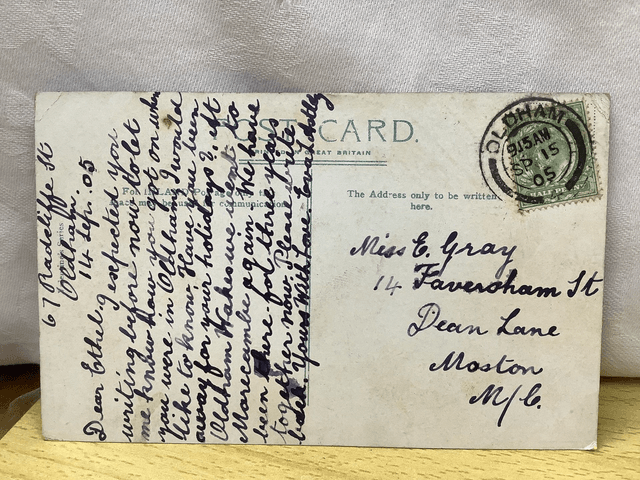 POST CARD.
PRINTED IN GREAT BRITAIN
The Address only to be written
here.
OLDHAM
9.15 AM
SP 15
05
Miss E. Gray
14 Faversham St
Dean Lane
Moston
M/C.
67 Radcliffe St
Oldham.
14 Sep. 05
Dear Ethel, I expected you
writing before now to let
me know how you got on when
you were in Oldham, I would
like to know. Have you been
away for your holidays? At
Oldham Wakes we went to
Morecambe again. We have
been there for three years
together now. Please write
back. Yours With Love